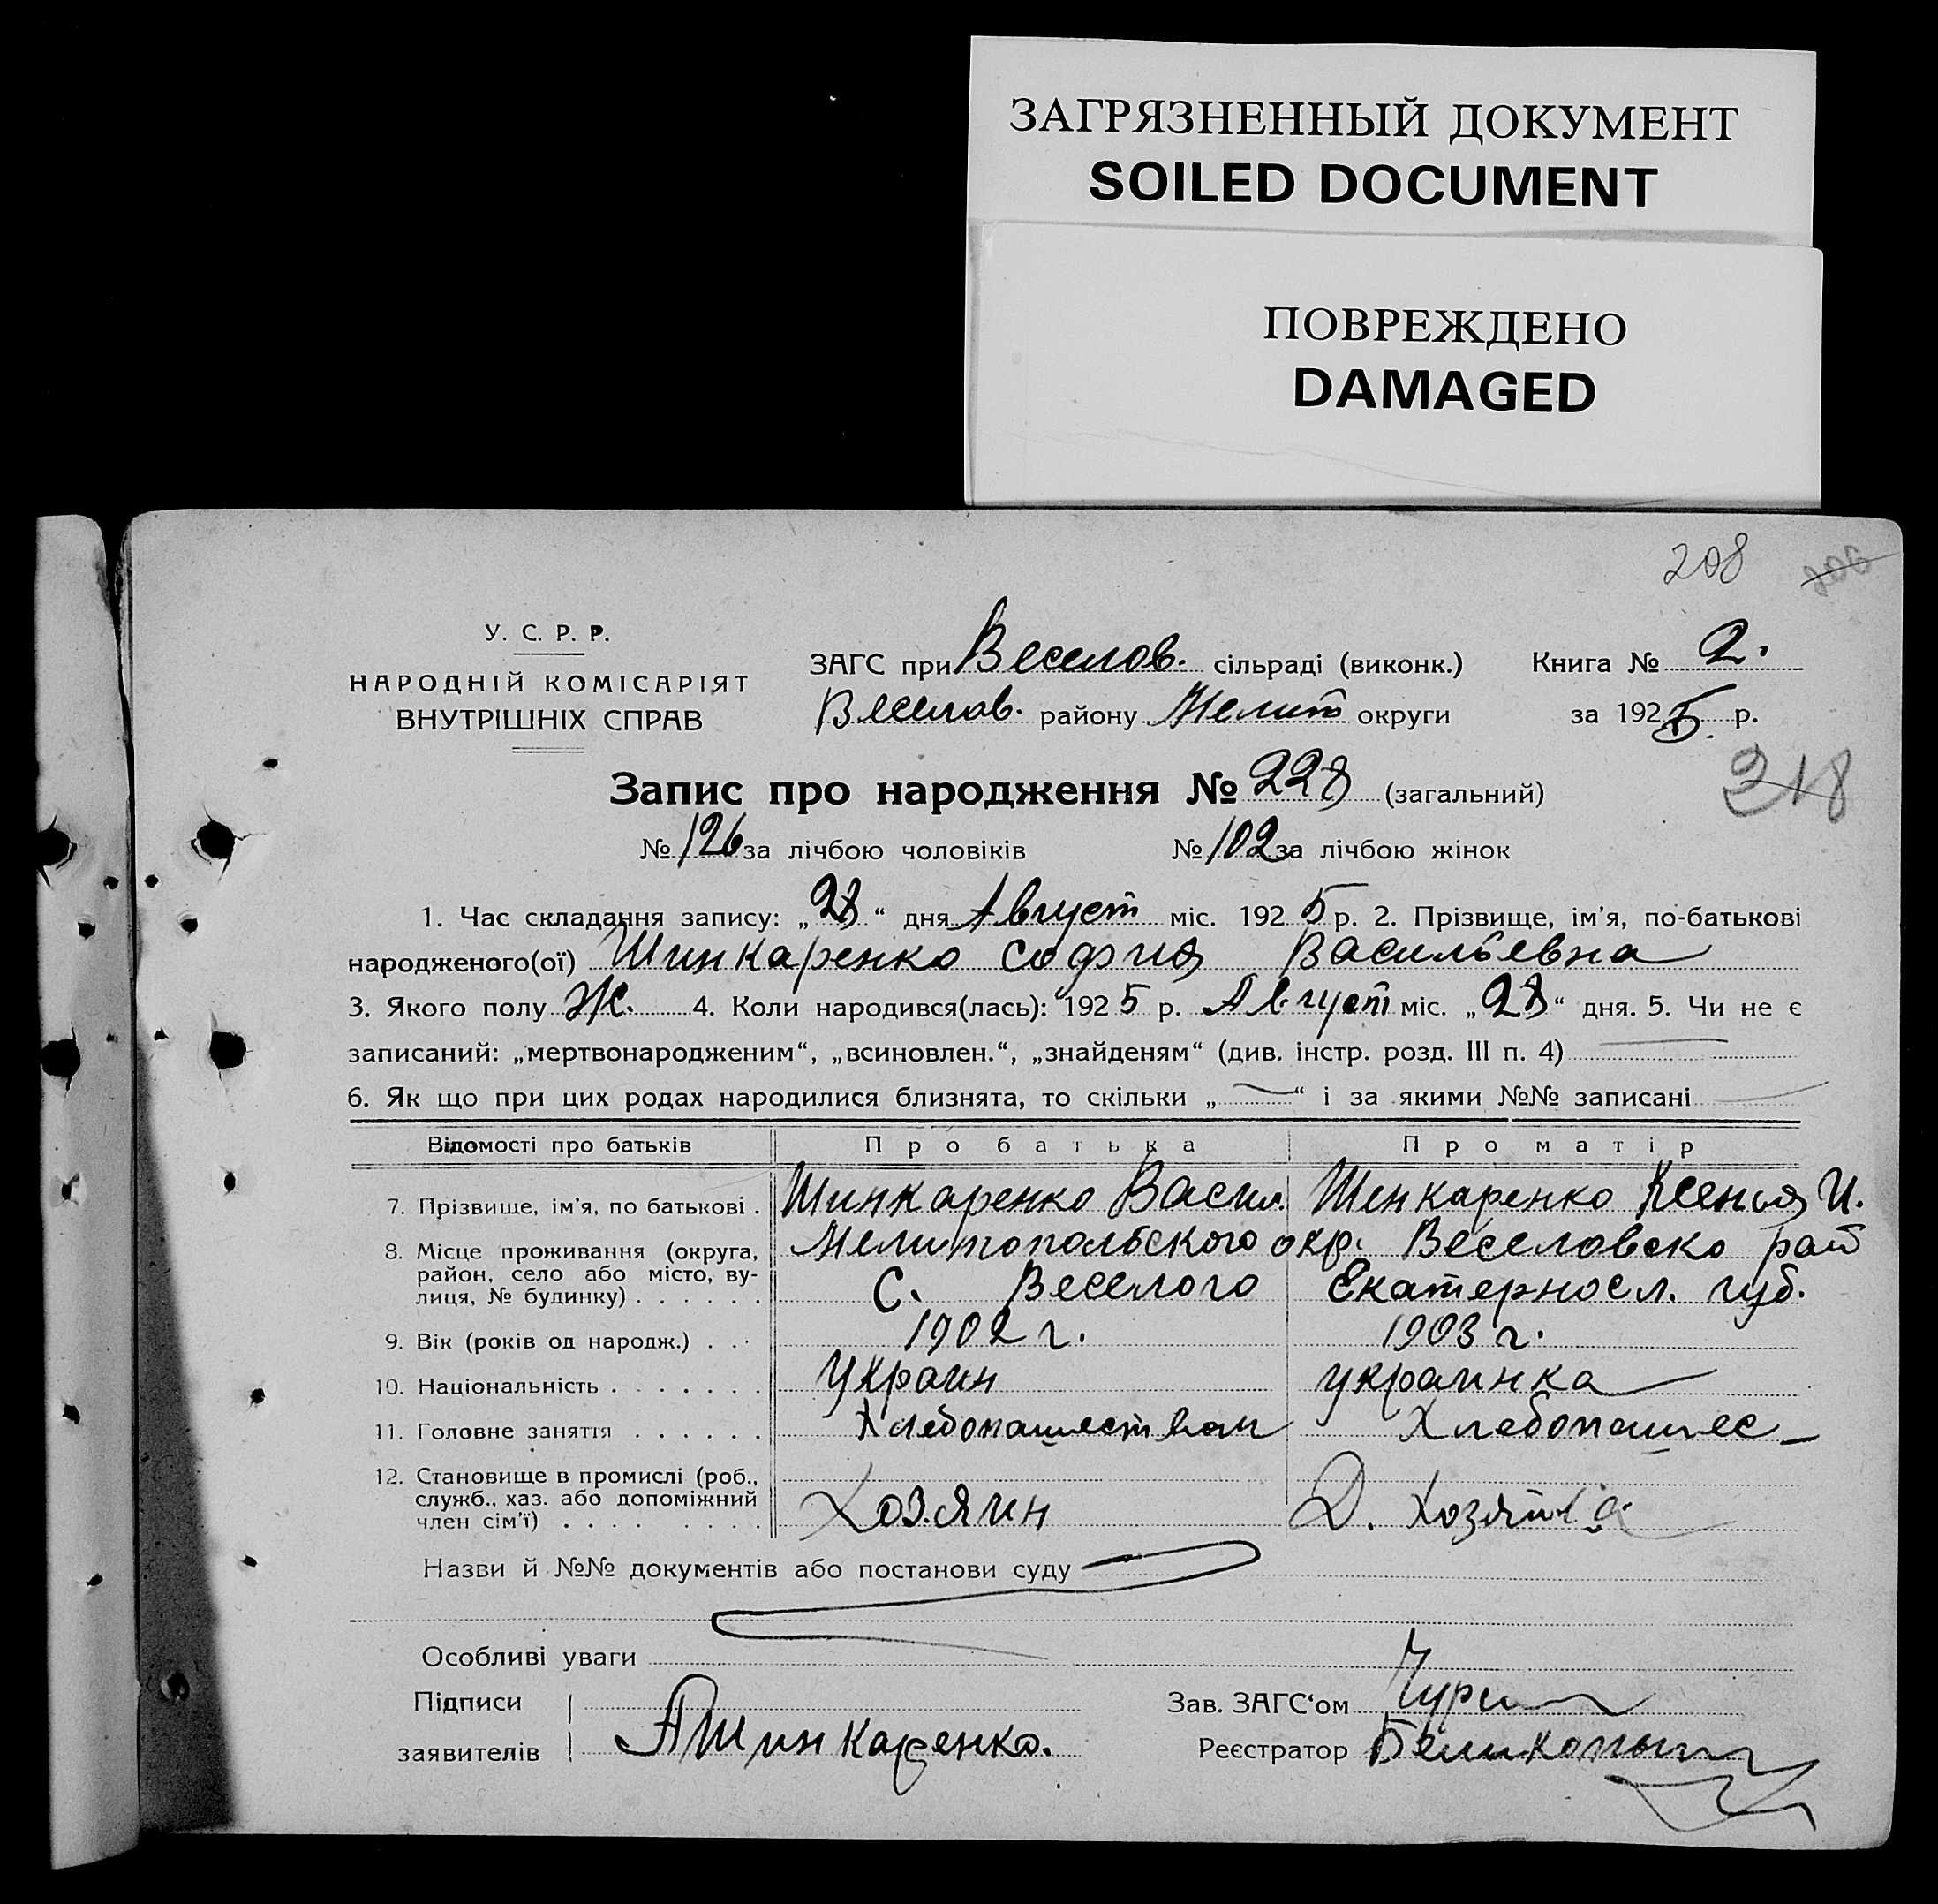 ЗАГРЯЗНЕННЫЙ ДОКУМЕНТ
SOILED DOCUMENT
ПОВРЕЖДЕНО
DAMAGED
208
У. С. Р. Р.
НАРОДНІЙ КОМІСАРІЯТ
ВНУТРІШНІХ СПРАВ
ЗАГС при Веселов. сільраді (виконк.) Книга № 2.
Веселов. району Мелит округи за 1925 р.
Запис про народження № 228 (загальний)
218
№ 126 за лічбою чоловіків № 102 за лічбою жінок
1. Час складання запису: „28“ дня Август міс. 1925 р. 2. Прізвище, ім'я, по-батькові
народженого(ої) Шинкаренко София Васильевна
3. Якого полу Ж. 4. Коли народився(лась): 1925 р. Август міс. „28“ дня. 5. Чи не є
записаний: „мертвонародженим“, „всиновлен.“, „знайденям“ (див. інстр. розд. III п. 4)
6. Як що при цих родах народилися близнята, то скільки „—“ і за якими №№ записані
Відомості про батьків Про батька Про матір
7. Прізвище, ім'я, по батькові . Шинкаренко Васил. Шенкаренко Ксенья И.
8. Місце проживання (округа, Мелитопольского окр. Веселовско рай
район, село або місто, ву-
лиця, № будинку) . . . . . . с. Веселого Екатерносл. губ.
9. Вік (років од народж.) . . . 1902 г. 1903 г.
10. Національність . . . . . . . Украин украинка
11. Головне заняття . . . . . . Хлебопашеством Хлебопашес
12. Становище в промислі (роб.,
служб., хаз. або допоміжний
член сім'ї) . . . . . . . . Хозяин Д. Хозяина
Назви й №№ документів або постанови суду
Особливі уваги
Підписи
заявителів АШинкаренко.
Зав. ЗАГС'ом
Реєстратор